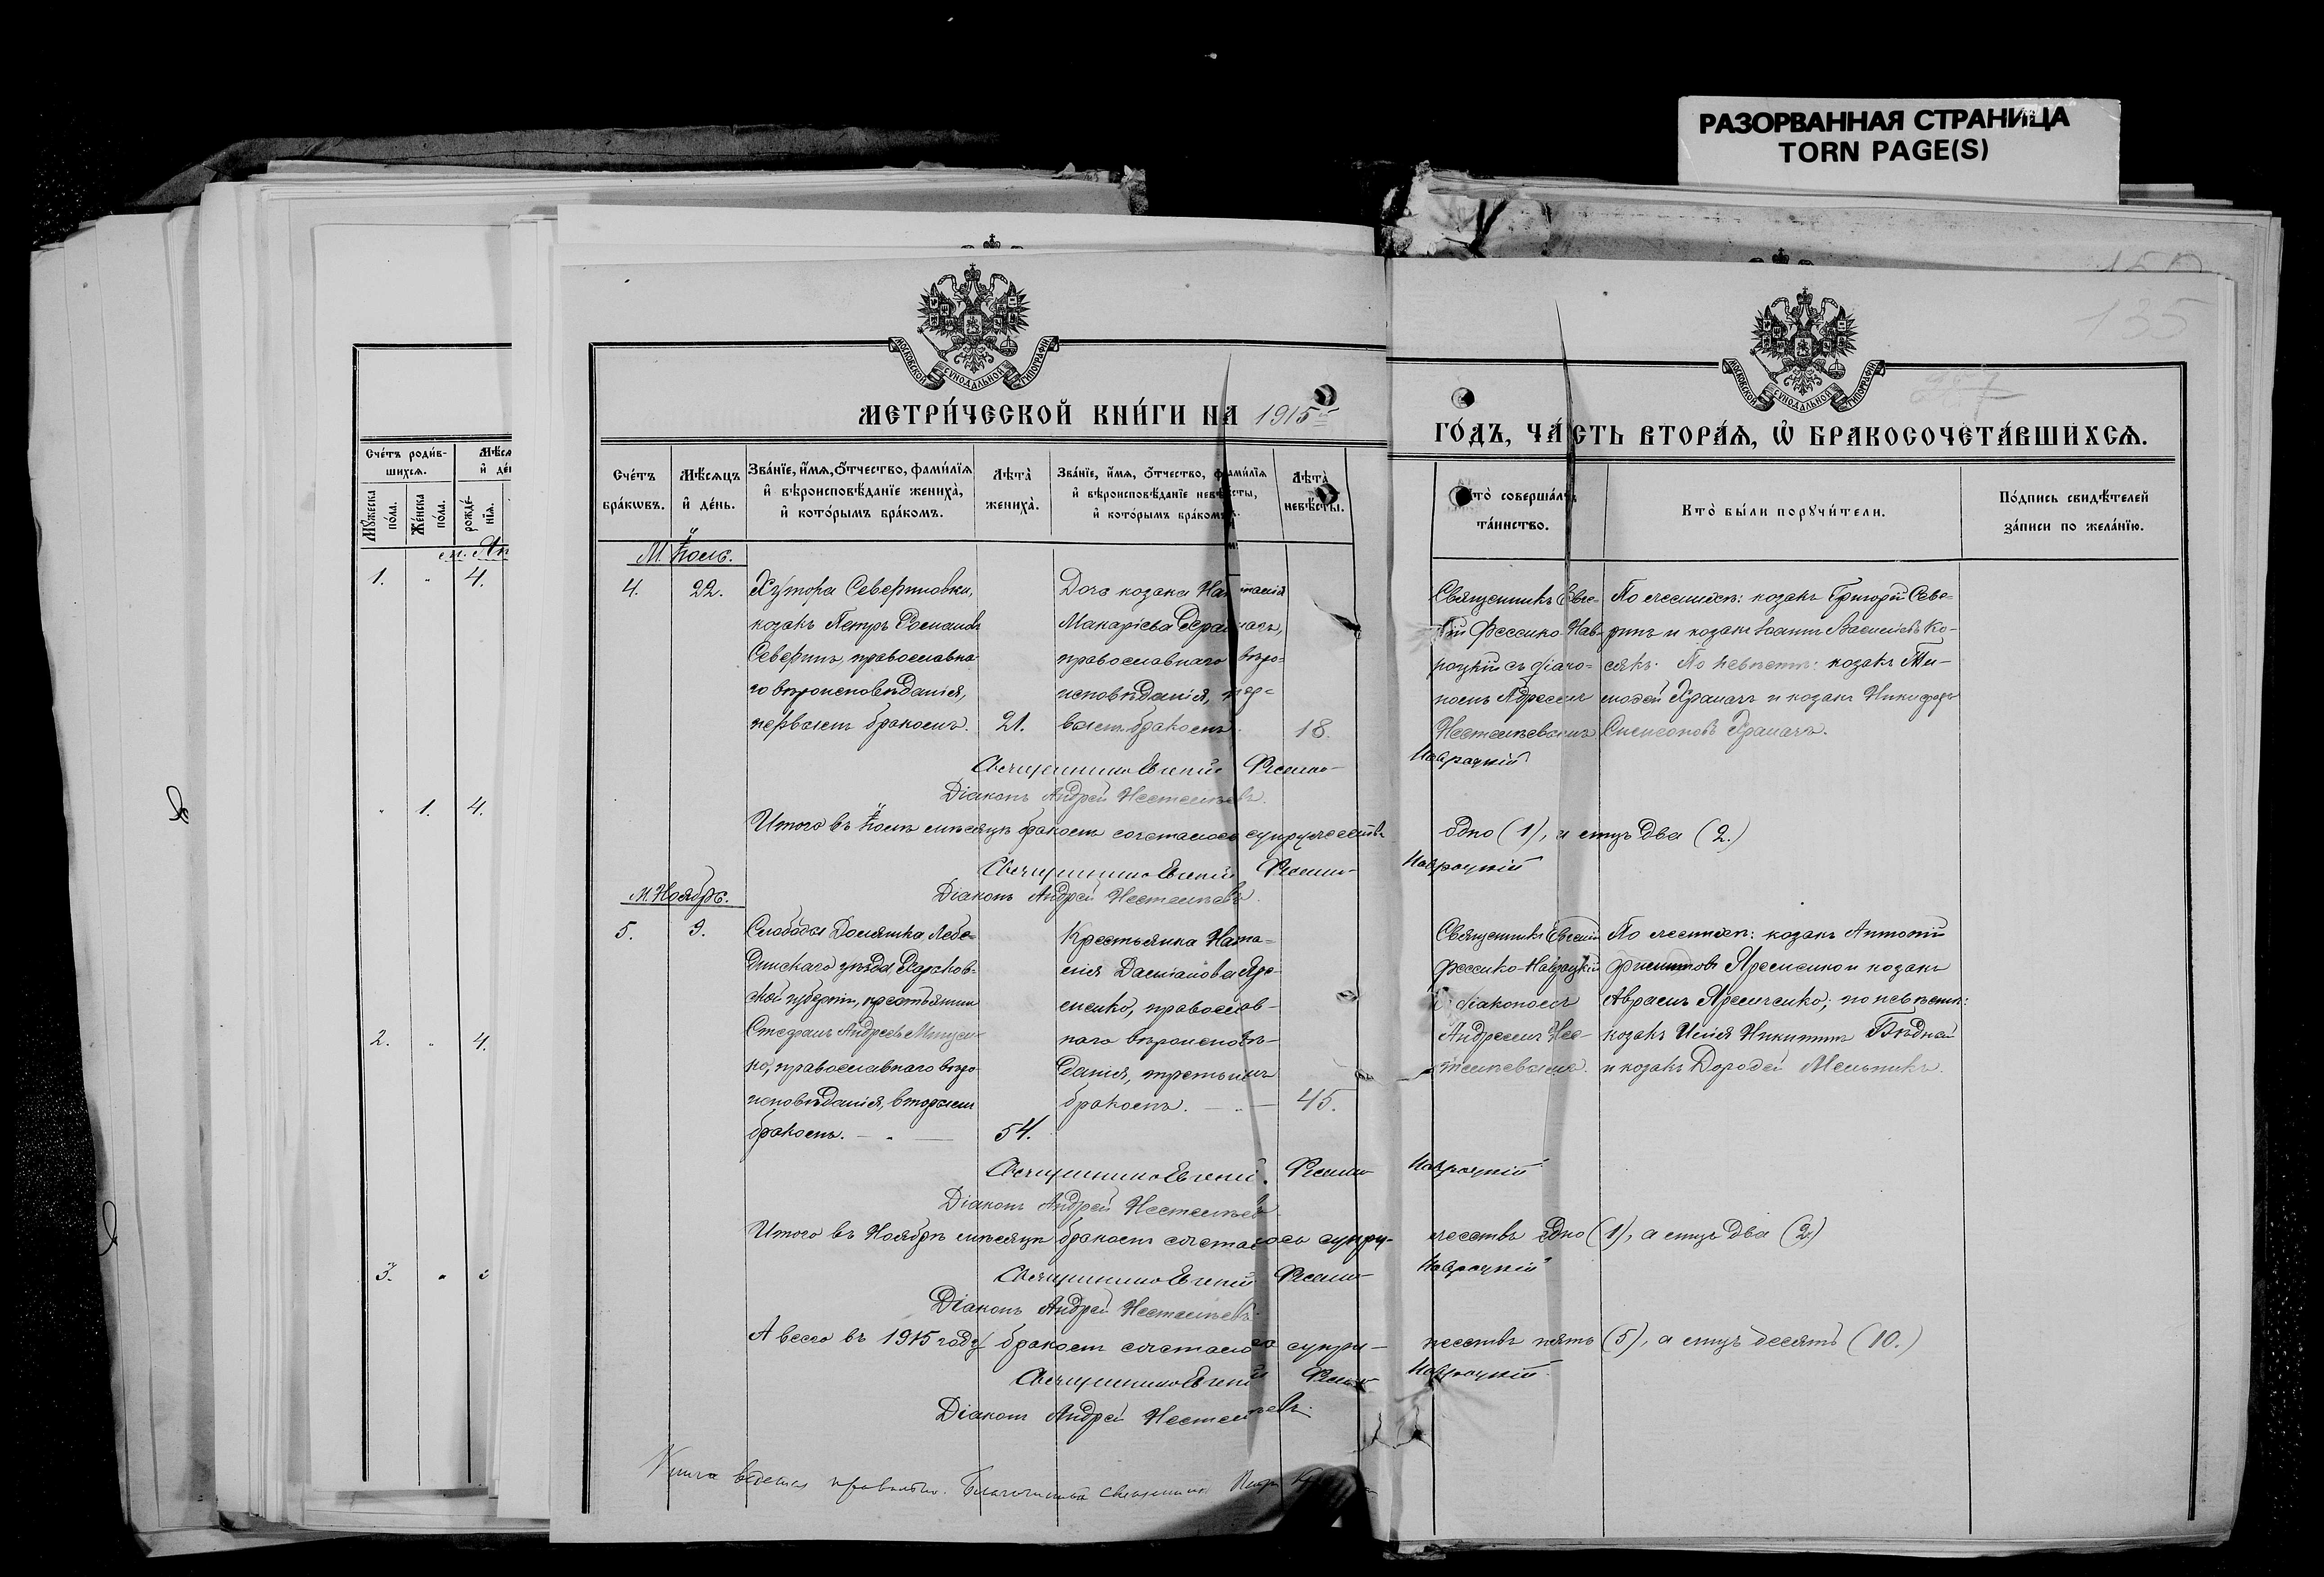 РАЗОРВАННАЯ СТРАНИЦА
TORN PAGE(S)
135
МОСКОВСКОЙ СѴНОДАЛЬНОЙ ТИПОГРАФІИ
МОСКОВСКОЙ СѴНОДАЛЬНОЙ ТИПОГРАФІИ
МЕТРИ́ЧЕСКОЙ КНИ́ГИ НА 1915й
ГО́ДЪ, ЧА́СТЬ ВТОРА́Я, Ѡ҆ БРАКОСОЧЕТА́ВШИХСЯ.
Сче́тъ роди́в-
шихся.
Мѹ́жеска по́ла.
Же́нска по́ла.
рожде́-
нїя.
1. " 4.
" 1. 4.
2. " 4.
3. "
Сче́тъ
бра́кѡвъ.
Мѣ́сяцъ
и҆ де́нь.
Зва́нїе, и҆́мя, о҆́тчество, фами́лїя
и҆ вѣроисповѣ́данїе жениха̀,
и҆ кото́рымъ бра́комъ.
Лѣта̀
жениха̀.
Зва́нїе, и҆́мя, о҆́тчество, фами́лїя
и҆ вѣроисповѣ́данїе невѣ́сты,
и҆ кото́рымъ бра́комъ.
Лѣта̀
невѣ́сты.
Кто̀ соверша́лъ
та́инство.
Кто̀ бы́ли порѹчи́тели.
По́дпись свидѣ́телей
за́писи по жела́нїю.
М. Іюль.
4.
22.
Хутора Севериновки,
козакъ Петръ Романовъ
Северинъ, православна-
го вѣроисповѣданія,
первымъ бракомъ.
21.
Дочь козака Наталія
Макарієва Храмачъ,
православнаго вѣро-
исповѣданія, пер-
вымъ бракомъ.
18.
Священникъ Евге-
ній Фесенко-Нав-
роцкій съ діако-
номъ Андреемъ
Нестеневымъ
По женихѣ: козакъ Григорій Севе-
ринъ и козакъ Іоаннъ Василіевъ Ко-
По невѣстѣ: козакъ Ти-
мофей Храмачъ и козакъ Никифоръ
Симеоновъ Храмачъ.
Священникъ Евгеній Фесенко-Навроцкій
Діаконъ Андрей
Итого въ Іюлѣ мѣсяцѣ бракомъ сочеталось супружествъ одно (1), а лицъ два (2.)
Священникъ Евгеній Фесенко-Навроцкій
Діаконъ Андрей
М. Ноябрь.
5.
9.
Слободы Лебе-
динскаго уѣзда, Харьков-
ской губерніи, крестьянинъ
Стефанъ Андреевъ
православнаго вѣро-
исповѣданія, вторымъ
бракомъ. — " —
54.
Крестьянка Ната-
лія Даміанова Яре-
менко, православ-
наго вѣроисповѣ-
данія, третьимъ
бракомъ. — " —
45.
Священникъ Евгеній
Фесенко-Навроцкій
съ діакономъ
Андреемъ Нес-
По женихѣ: козакъ Антоній
Филиповъ Яременко и козакъ
Авраамъ Яременко; по невѣстѣ:
козакъ Илія Никитинъ Бѣдный
и козакъ Дорофей Мельникъ.
Священникъ Евгеній Фесенко-Навроцкій
Діаконъ Андрей
Итого въ Ноябрѣ мѣсяцѣ бракомъ сочеталось супру-жествъ одно (1), а лицъ два (2)
Священникъ Евгеній Фесенко-Навроцкій
Діаконъ Андрей
А всего въ 1915 году бракомъ сочеталось супру-жествъ пять (5), а лицъ десять (10.)
Священникъ Евгеній Фесенко-Навроцкій
Діаконъ Андрей
Книга ведется правильно. Благочинный Священникъ Петръ